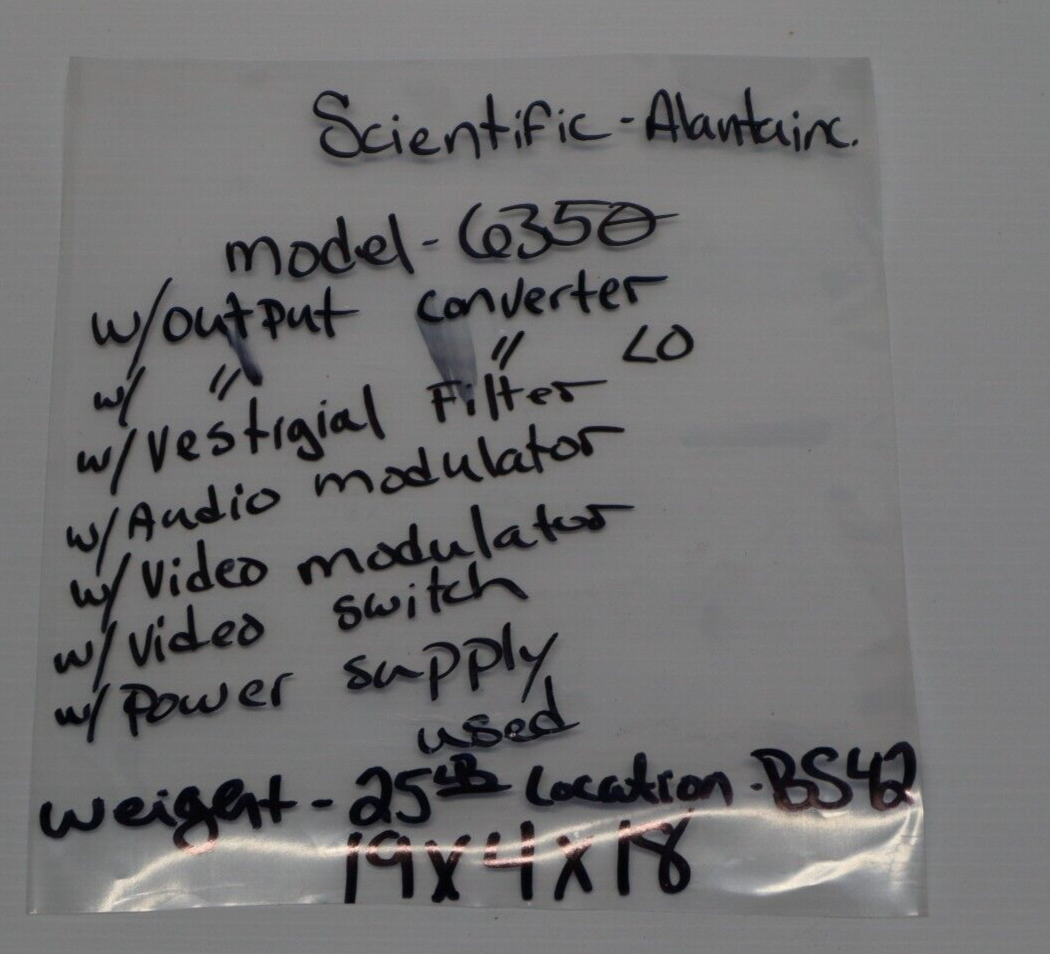 Scientific-Alantainc.
model-6350
w/output converter
w/ " " LO
w/Vestigial Filter
w/Audio modulator
w/Video modulator
w/Video switch
w/Power supply
used
weight-25LB Location-BS42
19x4x18